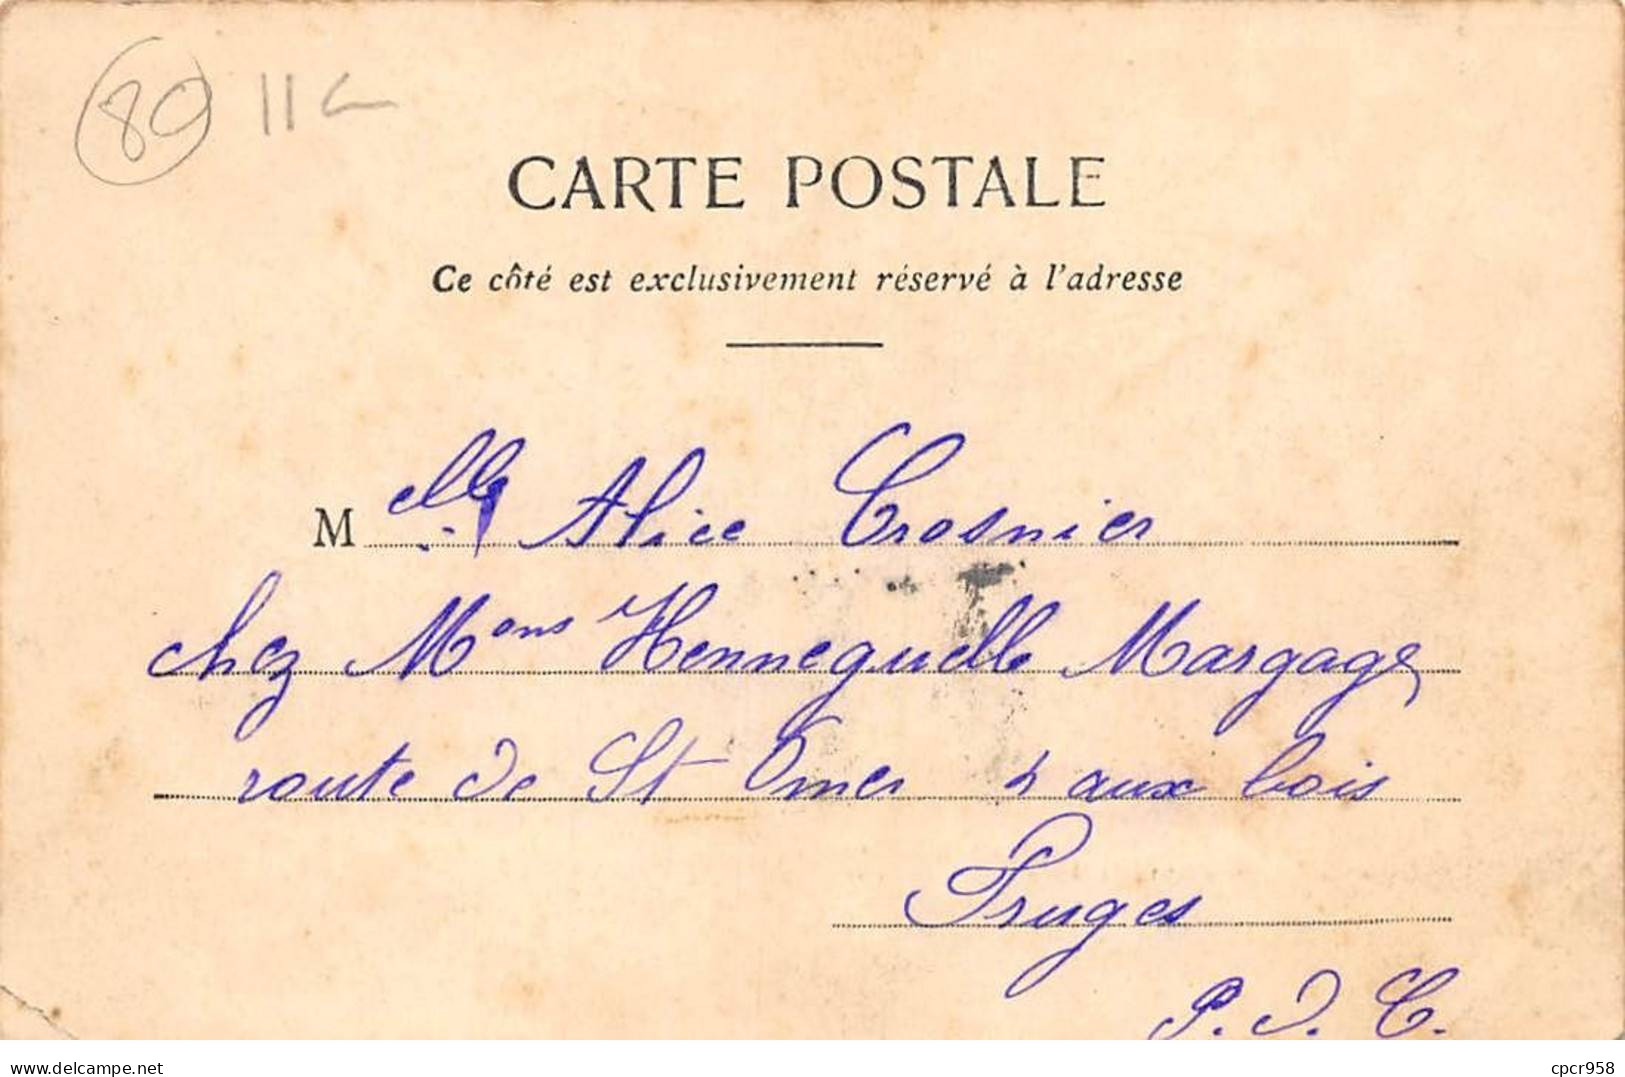 89 11c
CARTE POSTALE
Ce côté est exclusivement réservé à l'adresse
Melle Alice Crosnier
chez Mons Hennequelle Margage
route de St Omer aux bois
Fruges
P. D. C.
delcampe.net
cpcr958